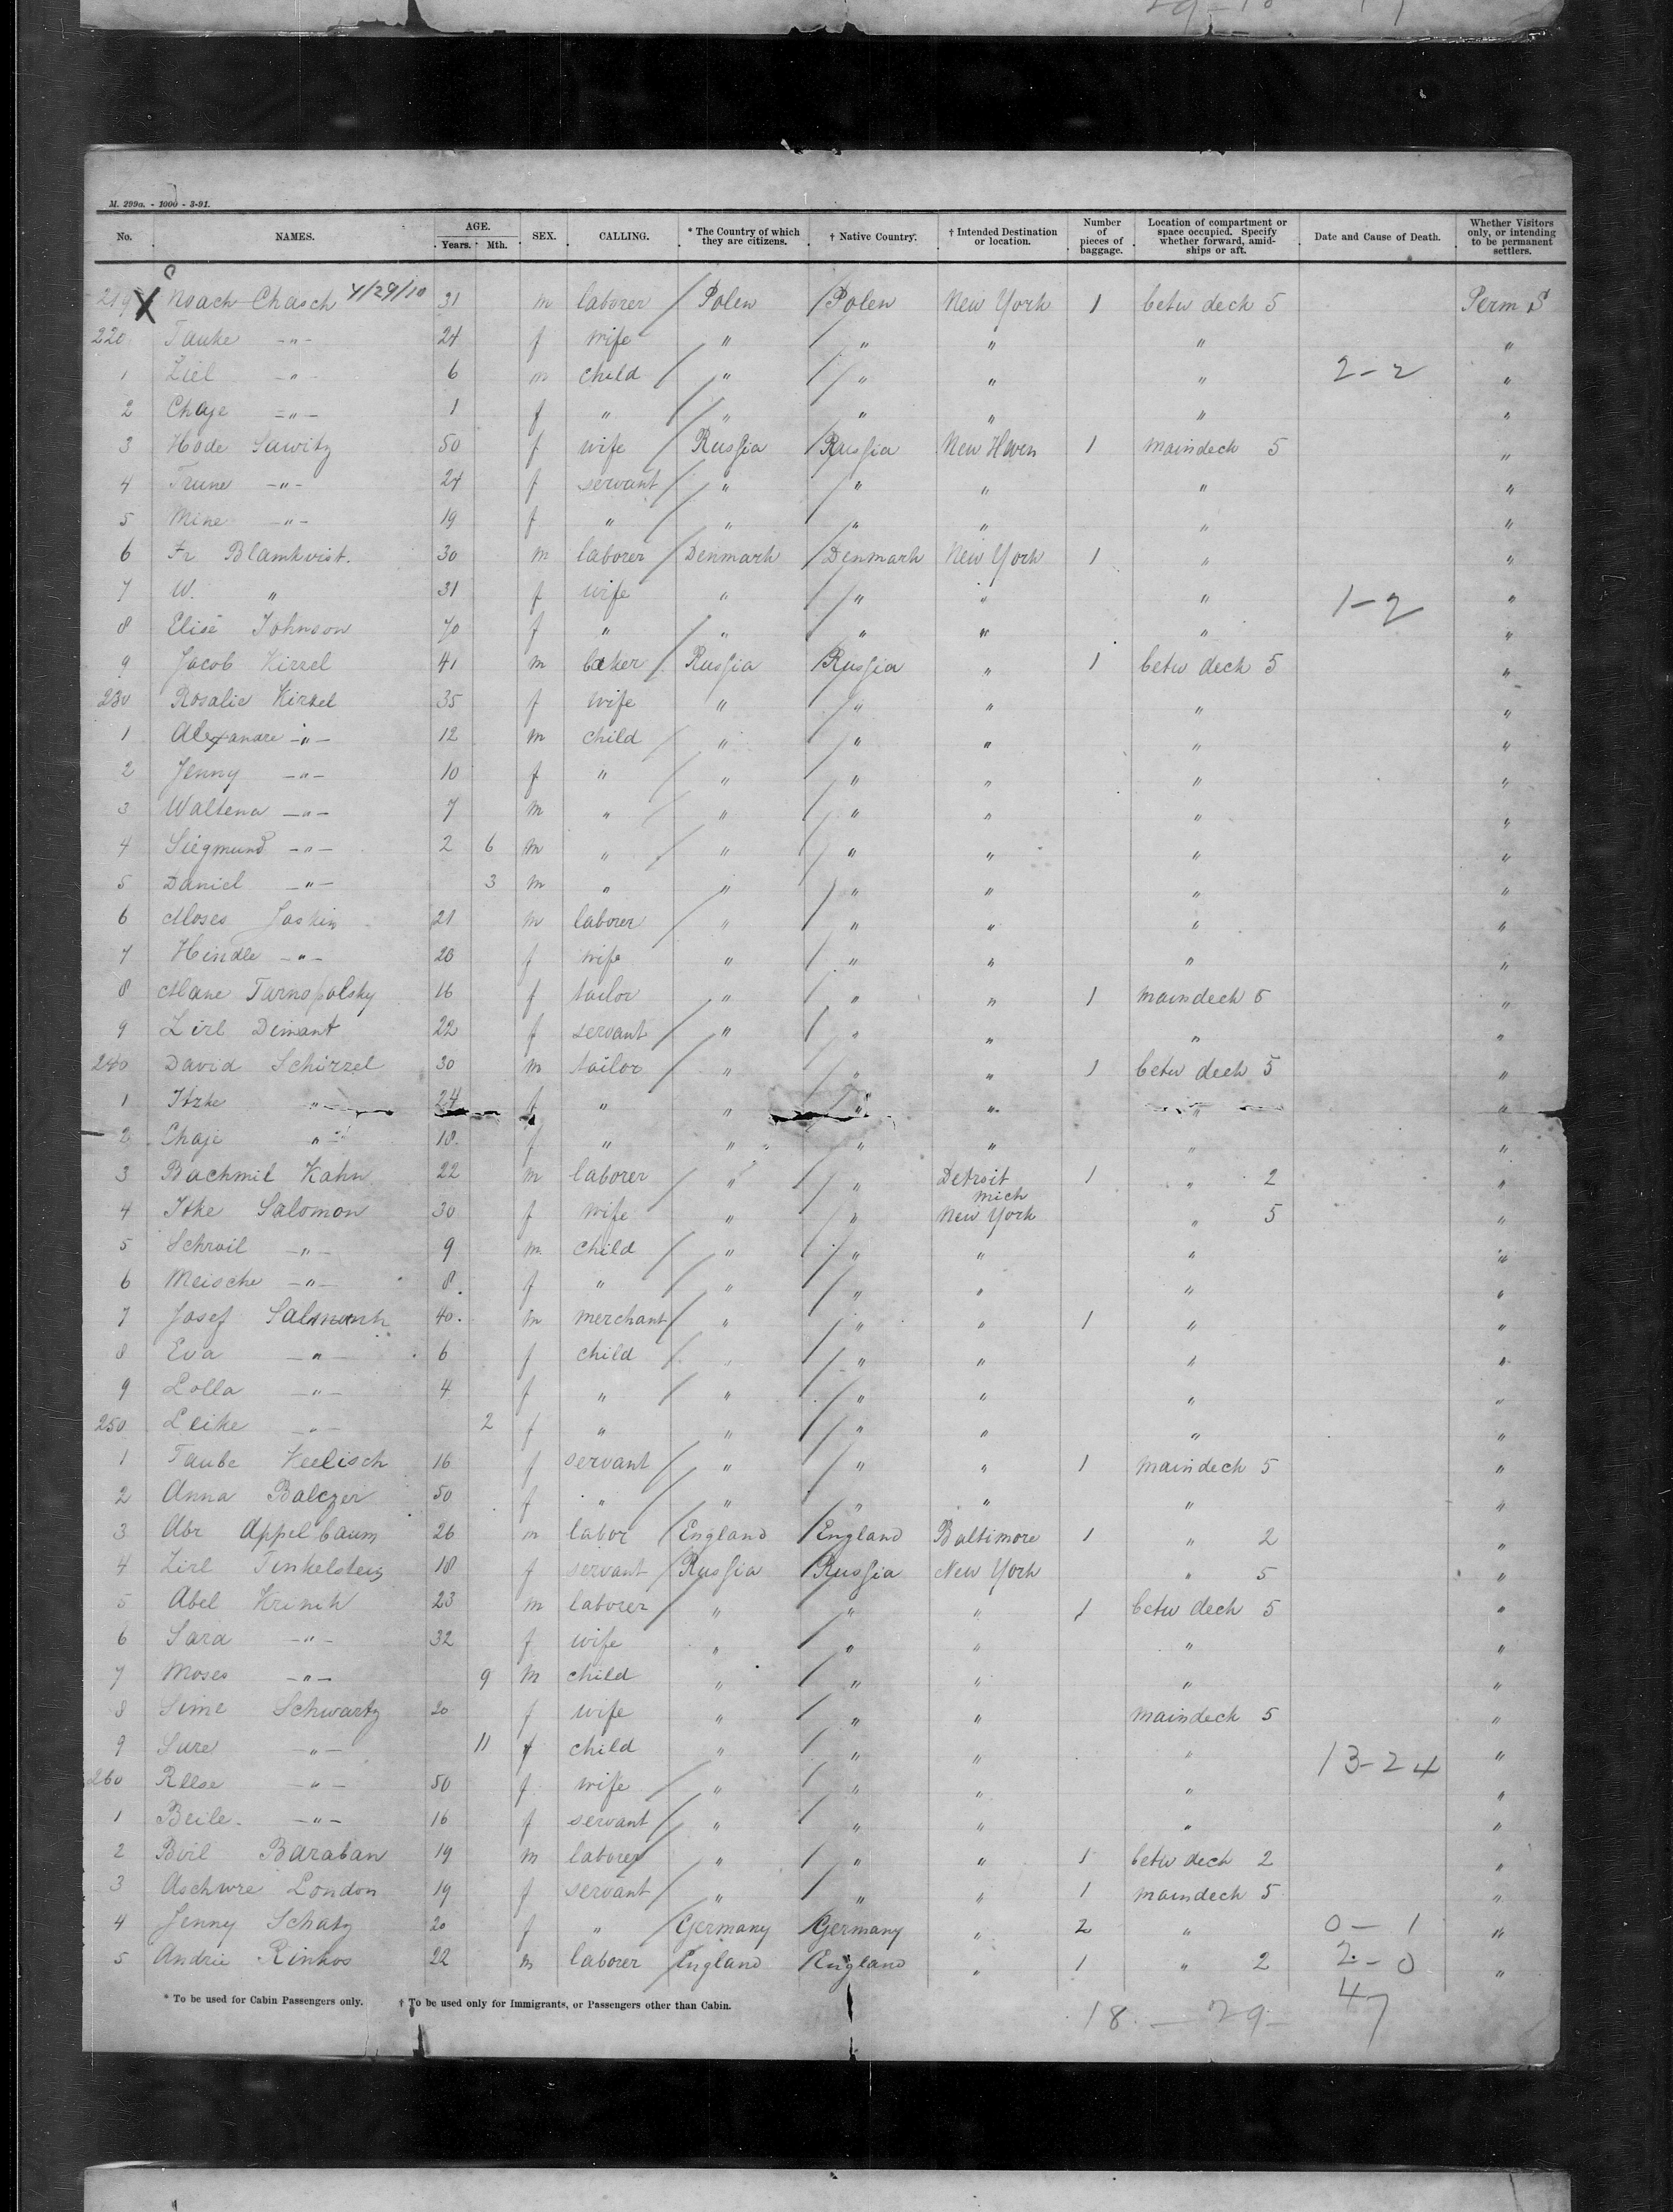 M. 299a. - 1000 - 3-91.
No. NAMES. AGE. Years. Mth. SEX. CALLING. * The Country of which they are citizens. † Native Country. † Intended Destination or location. Number of pieces of baggage. Location of compartment or space occupied. Specify whether forward, amidships or aft. Date and Cause of Death. Whether Visitors only, or intending to be permanent settlers.
219 X Noach Chasch 4/29/10 31 m laborer / Polen / Polen New York 1 betw deck 5 Perm S
220 Tauke -"- 24 f wife / " / " " " "
1 Ziel -"- 6 m child / " / " " " 2-2 "
2 Chaje -"- 1 f " / " / " " " "
3 Hode Sawitz 50 f wife / Russia / Russia New Haven 1 maindeck 5 "
4 Trune -"- 24 f servant / " / " " " "
5 Mine -"- 19 f " / " / " " " "
6 Fr Blamkvist. 30 m laborer / Denmark / Denmark New York 1 " "
7 W. " 31 f wife / " / " " " 1-2 "
8 Elise Johnson 70 f " / " / " " " "
9 Jacob Kirzel 41 m baker / Russia / Russia " 1 betw deck 5 "
230 Rosalie Kirzel 35 f wife / " / " " " "
1 Alexandre -"- 12 m child / " / " " " "
2 Jenny -"- 10 f " / " / " " " "
3 Waltena -"- 7 m " / " / " " " "
4 Siegmund -"- 2 6 m " / " / " " " "
5 Daniel -"- 3 m " / " / " " " "
6 Moses Jaskin 21 m laborer / " / " " " "
7 Hindle -"- 20 f wife / " / " " " "
8 Mane Tarnopolsky 16 f tailor / " / " " 1 maindeck 5 "
9 Zirl Dimant 22 f servant / " / " " " "
240 David Schirzel 30 m tailor / " / " " 1 betw deck 5 "
1 Itzke " 24 f " " " " " "
2 Chaje " 18 f " " " " " "
3 Bachmil Kahn 22 m laborer / " / " Detroit mich 1 " 2 "
4 Itke Salomon 30 f wife / " / " New York " 5 "
5 Schroil -"- 9 m child / " / " " " "
6 Meische -"- 8 f " / " / " " " "
7 Josef 40 m merchant / " / " " 1 " "
8 Eva -"- 6 f child / " / " " " "
9 Lolla -"- 4 f " / " / " " " "
250 Leike -"- 2 f " / " / " " " "
1 Taube Keelisch 16 f servant / " / " " 1 maindeck 5 "
2 Anna Balczer 50 f " / " / " " " "
3 Abr Appelbaum 26 m labor / England / England Baltimore 1 " 2 "
4 Zirl Finkelstein 18 f servant / Russia / Russia New York " 5 "
5 Abel Krinik 23 m laborer / " / " " 1 betw deck 5 "
6 Sara -"- 32 f wife / " / " " " "
7 Moses -"- 9 m child / " / " " " "
8 Sime Schwartz 20 f wife / " / " " maindeck 5 "
9 Sure -"- 11 f child / " / " " " 13-24 "
260 Reese -"- 50 f wife / " / " " " "
1 Beile -"- 16 f servant / " / " " " "
2 Boil Baraban 19 m laborer / " / " " 1 betw deck 2 "
3 Aschwre London 19 f servant / " / " " 1 maindeck 5 "
4 Jenny Schatz 20 f " / Germany / Germany " 2 " 0-1 "
5 Andrie Rinkos 22 m laborer / England / England " 1 " 2 2-0 "
* To be used for Cabin Passengers only. † To be used only for Immigrants, or Passengers other than Cabin.
18 - 29 - 47